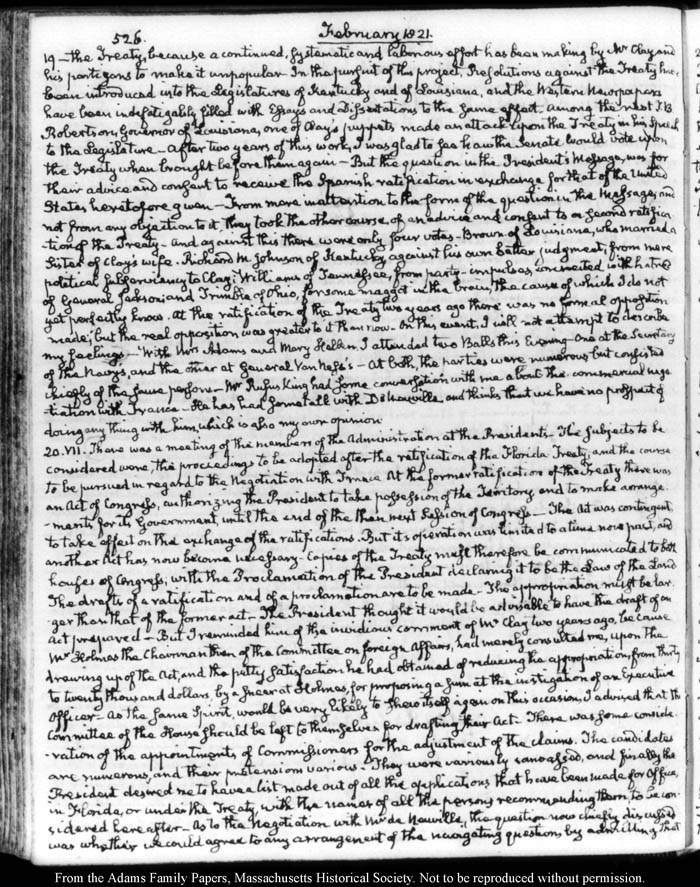 526.
February 1821.
19 — the Treaty, because a continued, systematic and laborious effort has been making by Mr Clay and
his partizans to make it unpopular. In the pursuit of this project, Resolutions against the Treaty have
been introduced into the Legislatures of Kentucky and of Louisiana, and the Western Newspapers
have been indefatigably filled with Essays and Dissertations to the same effect. Among the rest T. B.
Robertson, Governor of Louisiana, one of Clay's puppets made an attack upon the Treaty in his Speech
to the Legislature — After two years of this work, I was glad to see how the Senate would vote upon
the Treaty when brought before them again — But the question in the President's Message, was for
their advice and consent to receive the Spanish ratification in exchange for that of the United
States heretofore given — From mere inattention to the form of the question in the Message, and
not from any objection to it, they took the other course of an advice and consent to a second ratifica
-tion of the Treaty — and against this there were only four votes — Brown of Louisiana, who married a
Sister of Clay's wife. Richard M. Johnson of Kentucky, against his own better judgment, from mere
political subserviency to Clay; Williams of Tennessee, from party-impulses, connected with hatred
of General Jackson; and Trimble of Ohio, for some maggot in the brain, the cause of which I do not
yet perfectly know. At the ratification of the Treaty two years ago there was no formal opposition
made; but the real opposition was greater to it than now. On this event, I will not attempt to describe
my feelings — With Mrs Adams and Mary Hellen I attended two Balls this Evening — One at the Secretary
of the Navy's, and the other at General Van Ness's — At both, the parties were numerous but consisted
chiefly of the same persons — Mr Rufus King had some conversation with me about the commercial nego
-tiation with France — He has had some talk with De Neuville, and thinks that we have no prospect of
doing any thing with him, which is also my own opinion.
20. VII. There was a meeting of the members of the Administration at the President's — The subjects to be
considered were, the proceedings to be adopted after the ratification of the Florida Treaty, and the course
to be pursued in regard to the Negotiation with France. At the former ratification of the Treaty there was
an Act of Congress, authorizing the President to take possession of the Territory, and to make arrange
-ments for its Government, until the end of the then next Session of Congress — The Act was contingent
to take effect on the exchange of the ratifications. But its operation was limited to a time now past, and
another Act has now become necessary. Copies of the Treaty must therefore be communicated to both
houses of Congress; with the Proclamation of the President declaring it to be the Law of the Land
The drafts of a ratification and of a proclamation are to be made — The appropriation must be lar
ger than that of the former act — The President thought it would be advisable to have the draft of an
Act prepared — But I reminded him of the invidious comment of Mr Clay two years ago, because
Mr Holmes the Chairman then of the Committee on foreign Affairs, had merely consulted me, upon the
drawing up of the Act, and the petty satisfaction he had obtained of reducing the appropriation, from thirty
to twenty thousand dollars by a sneer at Holmes, for proposing a sum at the instigation of an Executive
Officer — As the same Spirit, would be very likely to shew itself again on this occasion, I advised that the
Committee of the House should be left to themselves for drafting their Act. There was some conside
-ration of the appointments of Commissioners for the adjustment of the claims. The candidates
are numerous, and their pretensions various — They were variously canvassed, and finally the
President desired me to have a list made out of all the applications that have been made for Office,
in Florida, or under the Treaty, with the names of all the persons recommending them, to be con
sidered hereafter — As to the Negotiation with Mr de Neuville, the question now chiefly discussed
was whether we could agree to any arrangement of the navigating question, by admitting that
From the Adams Family Papers, Massachusetts Historical Society. Not to be reproduced without permission.